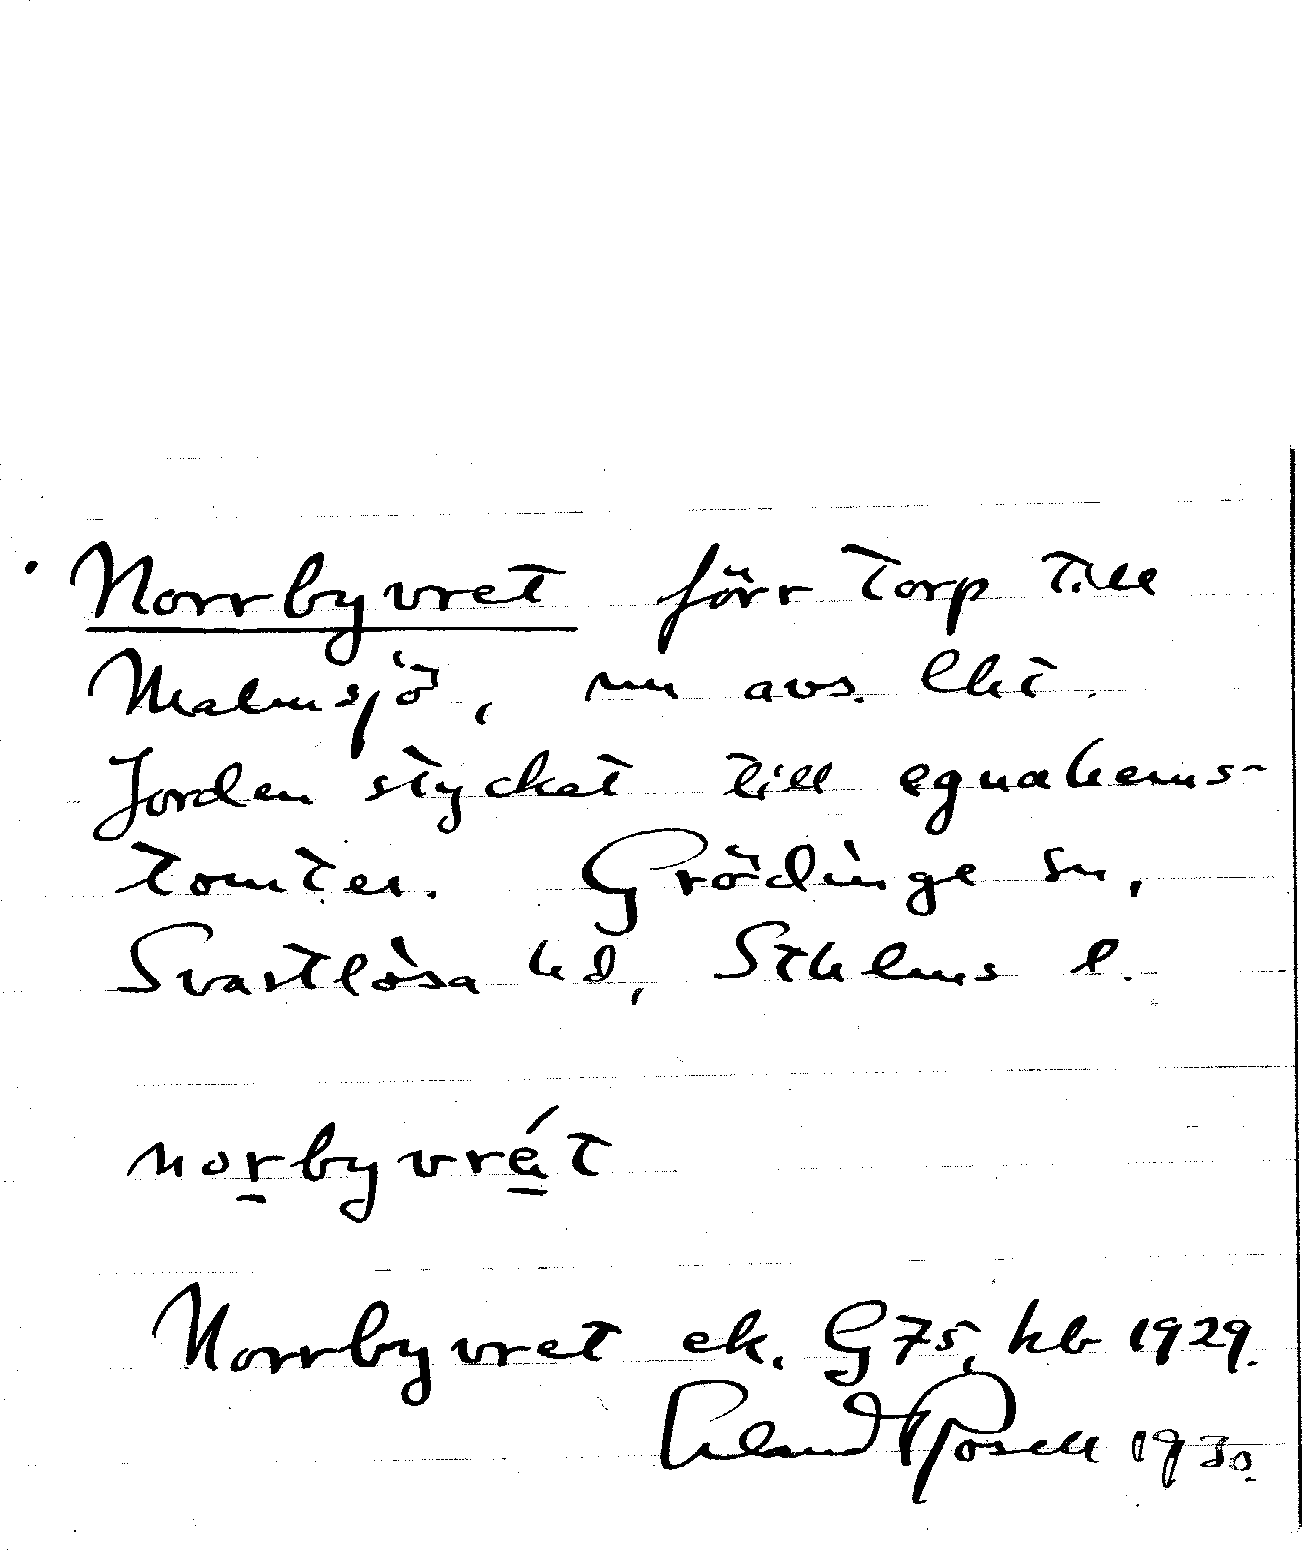 Norrbyvret förr torp till
Malmsjö, nu avs. lht.
Jorden stycket till egnahems-
tomter. Grödinge sn,
Svartlösa hd, Sthlms l.
norbyvrét
Norrbyvret ek. G75, hb 1929.
Erland Rosell 1930.